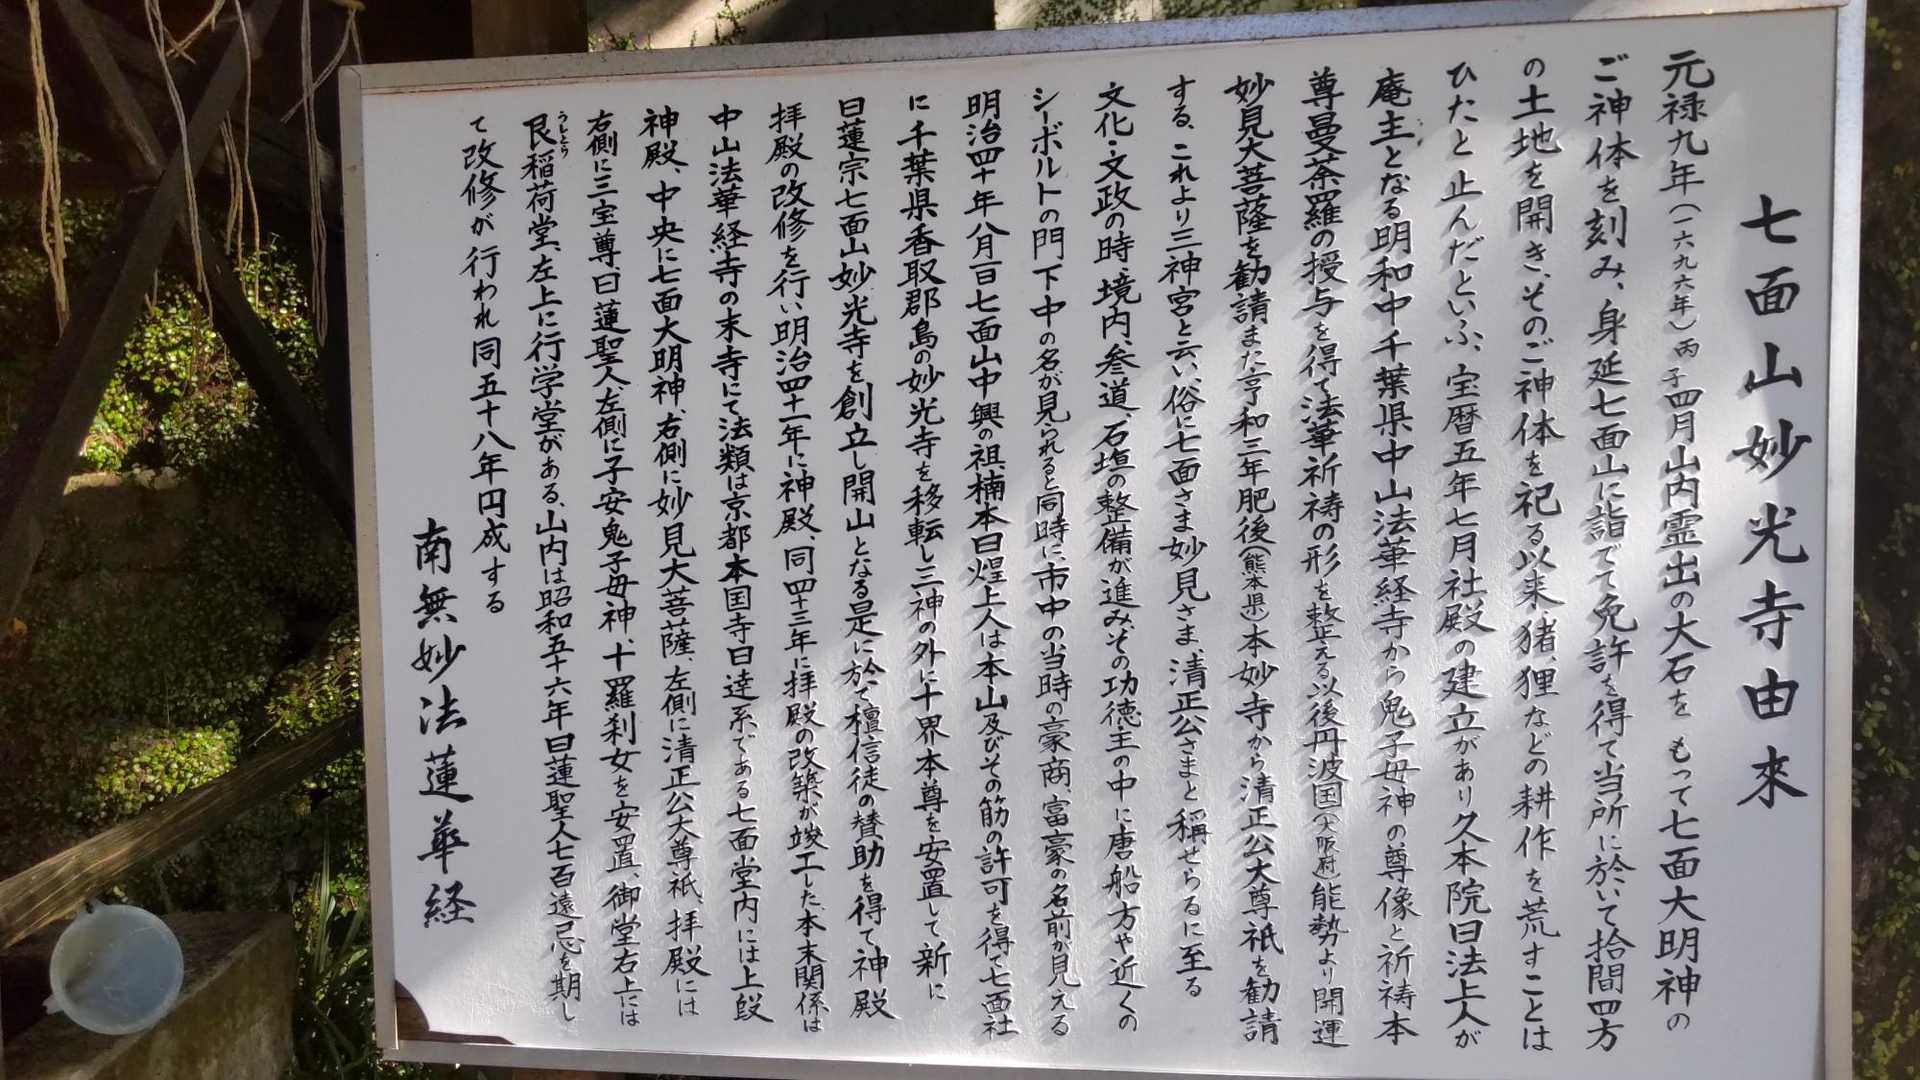 七面山妙光寺由來
元禄九年(一六九六年)丙子四月山内霊出の大石をもって七面大明神の
ご神体を刻み、身延七面山に詣でて免許を得て当所に於いて拾間四方
の土地を開き、そのご神体を祀る以来猪、狸などの耕作を荒すことは
ひたと止んだといふ、宝暦五年七月社殿の建立があり久本院日法上人が
庵主となる明和中千葉県中山法華経寺から鬼子母神の尊像と祈祷本
尊曼荼羅の授与を得て法華祈祷の形を整える以後丹波国(大阪府)能勢より開運
妙見大菩薩を勧請また亨和三年肥後(熊本県)本妙寺から清正公大尊祇を勧請
する、これより三神宮と云い俗に七面さま妙見さま、清正公さまと稱せらるに至る
文化・文政の時、境内、参道、石垣の整備が進み、その功徳主の中に唐船方や近くの
シーボルトの門下中の名が見られると同時に、市中の当時の豪商、富豪の名前が見える
明治四十年八月一日七面山中興の祖楠本日煌上人は本山及びその筋の許可を得、七面社
に千葉県香取郡島の妙光寺を移転し三神の外に十界本尊を安置して新に
日蓮宗七面山妙光寺を創立し開山となる是に於て檀信徒の賛助を得て神殿
拝殿の改修を行い明治四十一年に神殿、同四十三年に拝殿の改築が竣工した、本末関係は
中山法華経寺の末寺にて法類は京都本国寺日達系である七面堂内には上段
神殿、中央に七面大明神、右側に妙見大菩薩、左側に清正公大尊祇、拝殿には
右側に三宝尊、日蓮聖人左側に子安鬼子母神、十羅刹女を安置、御堂右上には
艮稲荷堂、左上に行学堂がある、山内は昭和五十六年日蓮聖人七百遠忌を期し
うしとら
て改修が行われ同五十八年円成する
南無妙法蓮華経